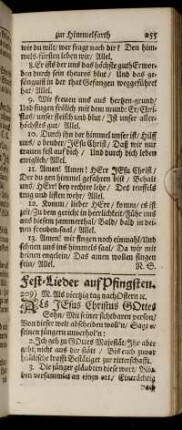 zur Himmelfarth 255
wie du wilt/ wer frage nach dir? Den him-
mels-fürsten leben wir/ Allel.
8. Er ist der uns das höchste guth Erwor-
ben durch sein theures blut/ Und das ge-
fängniß in der that Gefangen weggeführet
hat/ Allel.
9. Wir freuen uns aus hertzen-grund/
Und singen frölich mit dem mund: Er/ Chri-
stus/ unser fleisch und blut/ Ist unser aller-
höchstes gut/ Allel.
10. Durch ihn der himmel unser ist/ Hilff
uns/ o bruder/ JEsu Christ/ Daß wir nur
trauen fest auf dich/ Und durch dich leben
ewiglich/ Allel.
11. Amen! Amen! HErr JEsu Christ/
Der du gen himmel gefahren bist/ Behalt
uns/ HErr/ bey rechter lehr/ Des teuffels
trug und listen wehr/ Allel.
12. Komm/ lieber HErr/ komm/ es ist
zeit/ Zu dem gericht in herrlichkeit/ Führ uns
aus diesem jammerthal/ Bald/ bald in dei-
nen freuden-saal/ Allel.
13. Amen! wir singen noch einmahl/ Und
sehnen uns ins himmels saal/ Da wir mit
deinen engelein/ Das amen wollen singen
fein/ Allel. N. S.
Fest-Lieder auf Pfingsten.
209) M. Als vierzig tag nach Ostern ec.
ALs JEsus Christus GOttes
Sohn/ Mit seiner sichtbaren person/
Von dieser welt abscheiden woll'n/ Sagt er
seinen jüngern unverhol'n:
2. Ich geh zu GOttes Majestät/ Ihr aber
geht nicht aus der stätt/ Bis euch zuvor
himlische krafft Bestätiget zur ritterschafft.
3. Die jünger gläubten diese wort/ Blie-
ben versammlet an einen ort/ Einträchtig